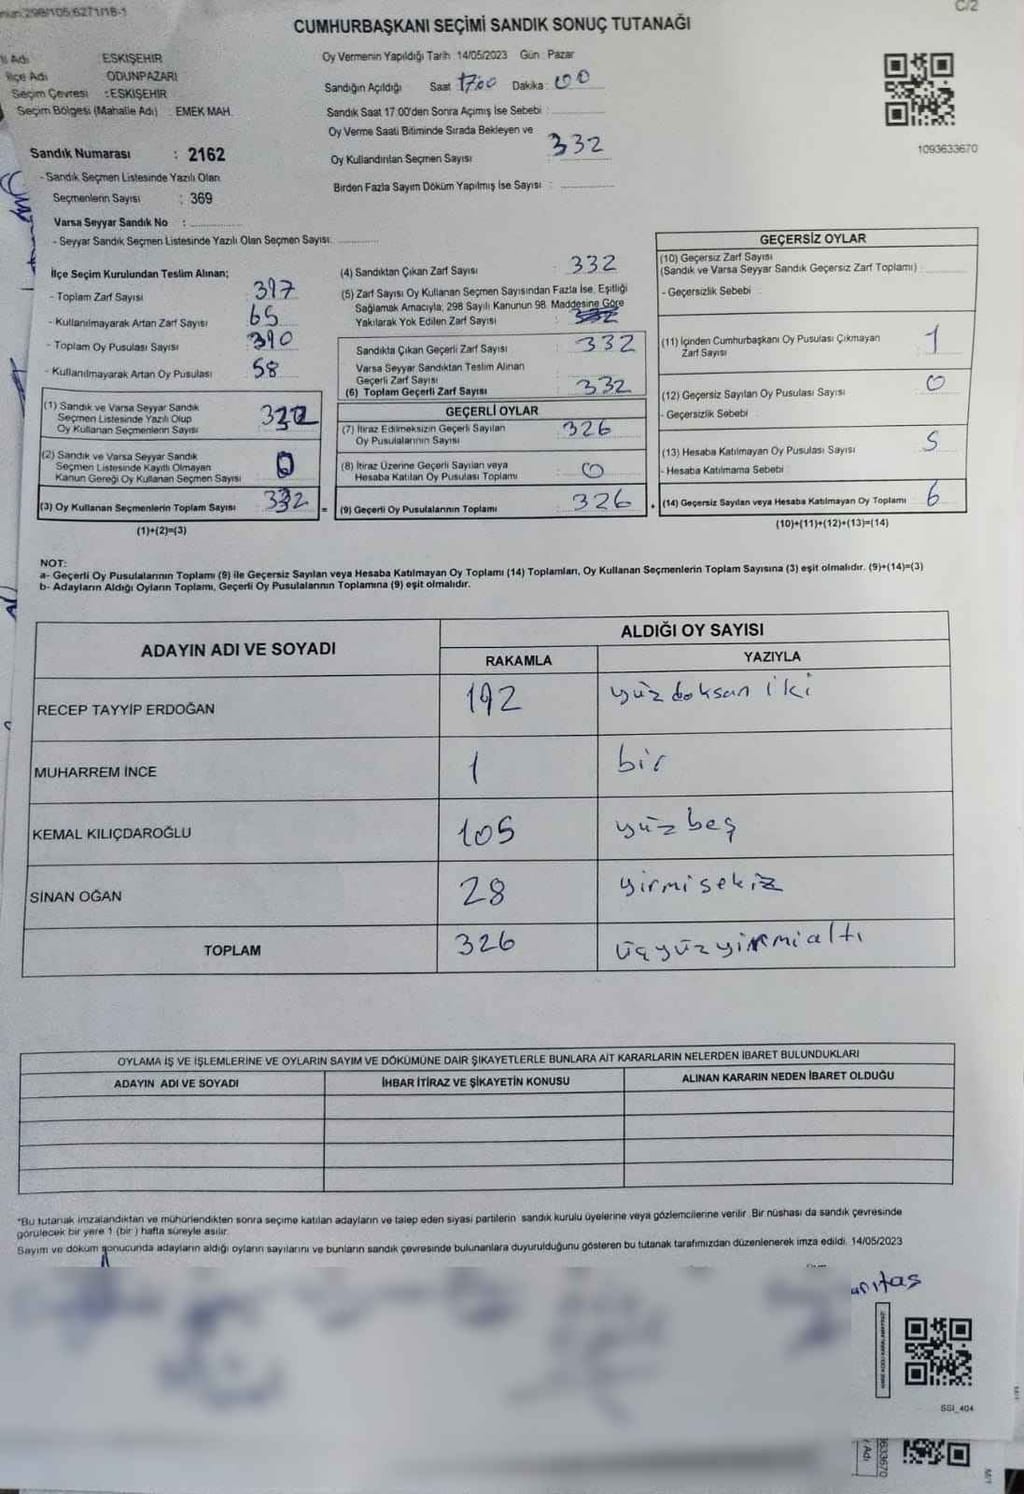 298/105/6271/18-1
C/2
CUMHURBAŞKANI SEÇİMİ SANDIK SONUÇ TUTANAĞI
İl Adı : ESKİŞEHİR
İlçe Adı : ODUNPAZARI
Seçim Çevresi : ESKİŞEHİR
Seçim Bölgesi (Mahalle Adı) : EMEK MAH.
Sandık Numarası : 2162
- Sandık Seçmen Listesinde Yazılı Olan
Seçmenlerin Sayısı : 369
Varsa Seyyar Sandık No :
- Seyyar Sandık Seçmen Listesinde Yazılı Olan Seçmen Sayısı:
Oy Vermenin Yapıldığı Tarih 14/05/2023 Gün : Pazar
Sandığın Açıldığı Saat 17:00 Dakika: 00
Sandık Saat 17:00'den Sonra Açımış İse Sebebi :
Oy Verme Saati Bitiminde Sırada Bekleyen ve
Oy Kullandırılan Seçmen Sayısı : 332
Birden Fazla Sayım Döküm Yapılmış İse Sayısı :
1093633670
İlçe Seçim Kurulundan Teslim Alınan;
- Toplam Zarf Sayısı : 397
- Kullanılmayarak Artan Zarf Sayısı : 65
- Toplam Oy Pusulası Sayısı : 390
- Kullanılmayarak Artan Oy Pusulası : 58
(1) Sandık ve Varsa Seyyar Sandık
Seçmen Listesinde Yazılı Olup
Oy Kullanan Seçmenlerin Sayısı
(2) Sandık ve Varsa Seyyar Sandık
Seçmen Listesinde Kayıtlı Olmayan
Kanun Gereği Oy Kullanan Seçmen Sayısı : 0
(3) Oy Kullanan Seçmenlerin Toplam Sayısı : 332
(1)+(2)=(3)
(4) Sandıktan Çıkan Zarf Sayısı : 332
(5) Zarf Sayısı Oy Kullanan Seçmen Sayısından Fazla İse, Eşitliği
Sağlamak Amacıyla, 298 Sayılı Kanunun 98. Maddesine Göre
Yakılarak Yok Edilen Zarf Sayısı :
Sandıkta Çıkan Geçerli Zarf Sayısı : 332
Varsa Seyyar Sandıktan Teslim Alınan
Geçerli Zarf Sayısı :
(6) Toplam Geçerli Zarf Sayısı : 332
GEÇERLİ OYLAR
(7) İtiraz Edilmeksizin Geçerli Sayılan
Oy Pusulalarının Sayısı : 326
(8) İtiraz Üzerine Geçerli Sayılan veya
Hesaba Katılan Oy Pusulası Toplamı : 0
(9) Geçerli Oy Pusulalarının Toplamı : 326
GEÇERSİZ OYLAR
(10) Geçersiz Zarf Sayısı
(Sandık ve Varsa Seyyar Sandık Geçersiz Zarf Toplamı)
- Geçersizlik Sebebi :
(11) İçinden Cumhurbaşkanı Oy Pusulası Çıkmayan
Zarf Sayısı : 1
(12) Geçersiz Sayılan Oy Pusulası Sayısı : 0
- Geçersizlik Sebebi :
(13) Hesaba Katılmayan Oy Pusulası Sayısı : 5
- Hesaba Katılmama Sebebi :
(14) Geçersiz Sayılan veya Hesaba Katılmayan Oy Toplamı : 6
(10)+(11)+(12)+(13)=(14)
NOT:
a- Geçerli Oy Pusulalarının Toplamı (9) ile Geçersiz Sayılan veya Hesaba Katılmayan Oy Toplamı (14) Toplamları, Oy Kullanan Seçmenlerin Toplam Sayısına (3) eşit olmalıdır. (9)+(14)=(3)
b- Adayların Aldığı Oyların Toplamı, Geçerli Oy Pusulalarının Toplamına (9) eşit olmalıdır.
ADAYIN ADI VE SOYADI
ALDIĞI OY SAYISI
RAKAMLA YAZIYLA
RECEP TAYYİP ERDOĞAN 192 yüz doksan iki
MUHARREM İNCE 1 bir
KEMAL KILIÇDAROĞLU 105 yüz beş
SİNAN OĞAN 28 yirmi sekiz
TOPLAM 326 üçyüzyirmialtı
OYLAMA İŞ VE İŞLEMLERİNE VE OYLARIN SAYIM VE DÖKÜMÜNE DAİR ŞİKAYETLERLE BUNLARA AİT KARARLARIN NELERDEN İBARET BULUNDUKLARI
ADAYIN ADI VE SOYADI İHBAR İTİRAZ VE ŞİKAYETİN KONUSU ALINAN KARARIN NEDEN İBARET OLDUĞU
*Bu tutanak imzalandıktan ve mühürlendikten sonra seçime katılan adayların ve talep eden siyasi partilerin sandık kurulu üyelerine veya gözlemcilerine verilir. Bir nüshası da sandık çevresinde
görülecek bir yere 1 (bir) hafta süreyle asılır.
Sayım ve döküm sonucunda adayların aldığı oyların sayılarını ve bunların sandık çevresinde bulunanlara duyurulduğunu gösteren bu tutanak tarafımızdan düzenlenerek imza edildi. 14/05/2023
SSI_404